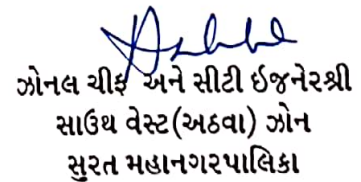 ઝોનલ ચીફ અને સીટી ઈજનેરશ્રી
સાઉથ વેસ્ટ(અઠવા) ઝોન
સુરત મહાનગરપાલિકા